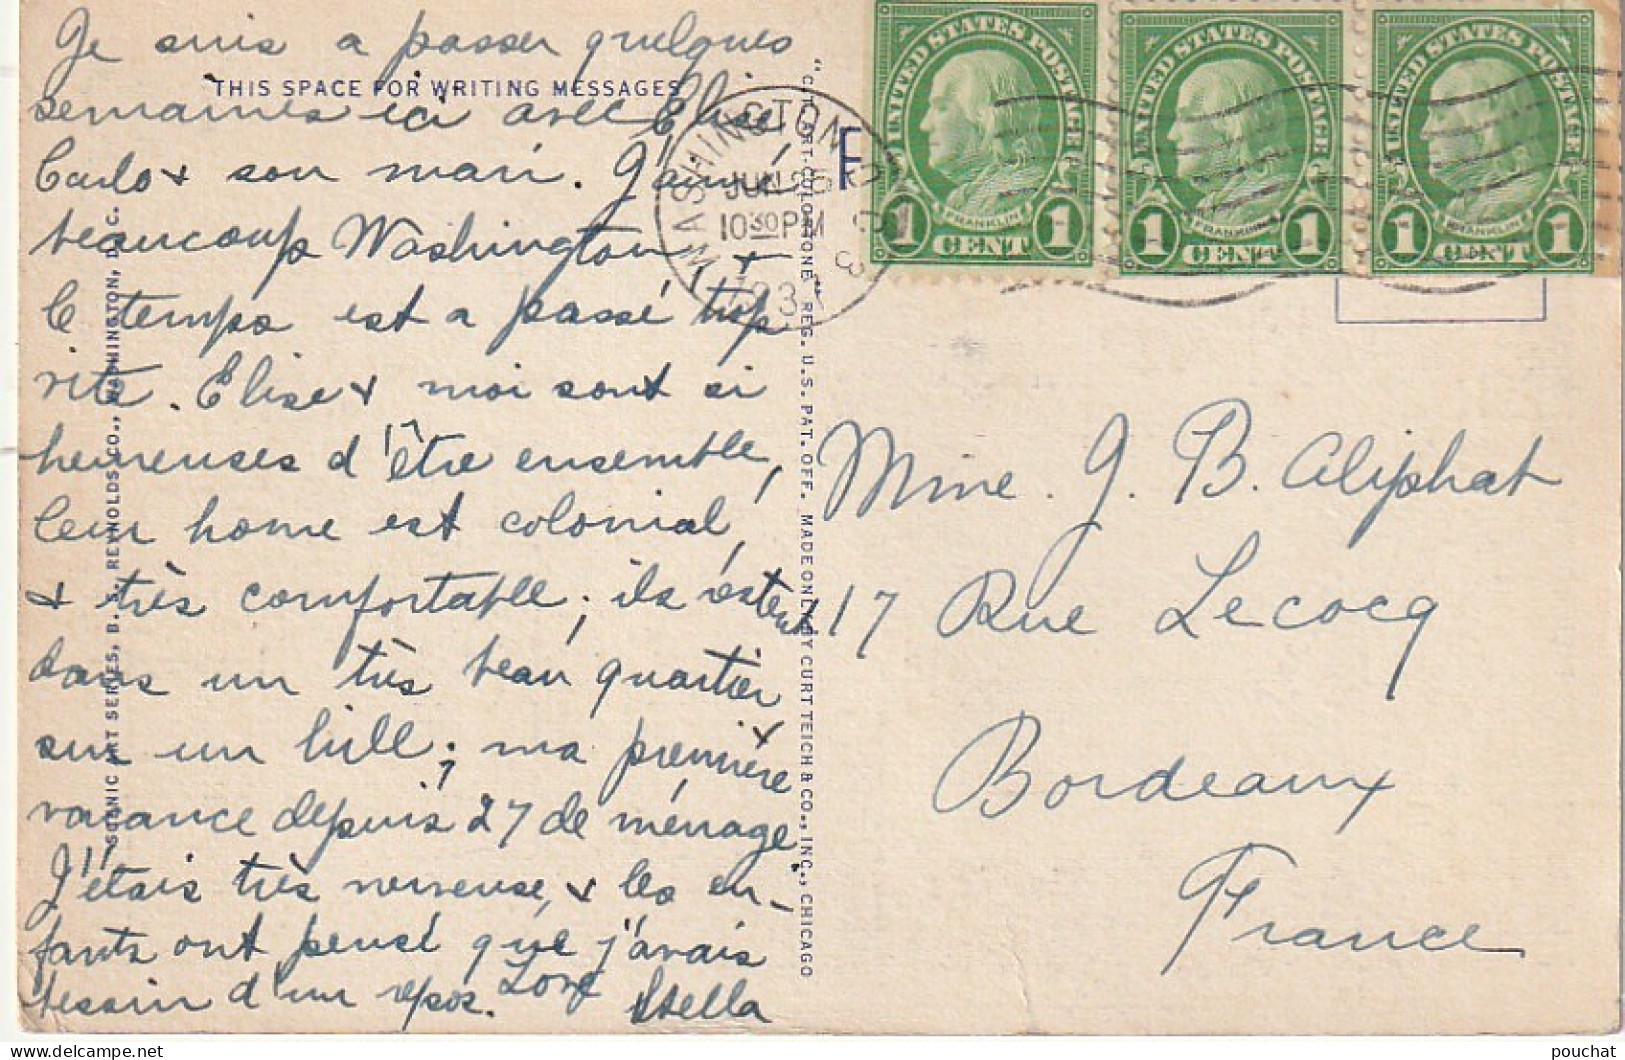 Je suis a passer quelques
THIS SPACE FOR WRITING MESSAGES
semaines ici avec Elise
Carlo & son mari. J'aime
beaucoup Washington &
le temps est a passé trop
vite. Elise & moi sont si
heureuses d'être ensemble,
leur home est colonial,
& très comfortable; ils restent
dans un très beau quartier
sur un hill; ma première
vacance depuis 27 de ménage.
J'étais très nerveuse, & les en-
fants ont pensé que j'avais
besoin d'un repos. Love Stella
SCENIC ART SERIES, B. S. REYNOLDS CO., WASHINGTON, D. C.
ART-COLORTONE" REG. U.S. PAT. OFF. MADE ONLY BY CURT TEICH & CO., INC., CHICAGO
WASHINGTON
JUN 25
10 30 PM
193
UNITED STATES POSTAGE
FRANKLIN
1 CENT 1
UNITED STATES POSTAGE
FRANKLIN
1 CENT 1
UNITED STATES POSTAGE
FRANKLIN
1 CENT 1
Mme. J. B. Aliphat
17 Rue Lecocq
Bordeaux
France
pouchat